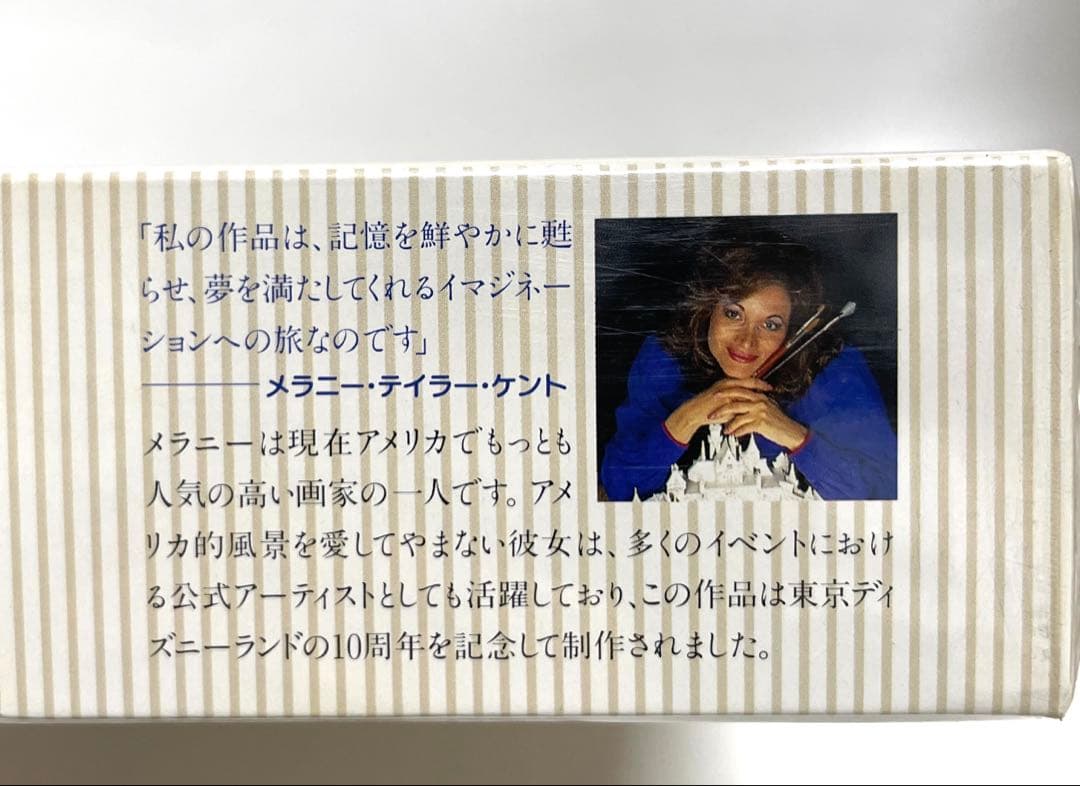 「私の作品は、記憶を鮮やかに甦
らせ、夢を満たしてくれるイマジネー
ションへの旅なのです」
メラニー・テイラー・ケント
メラニーは現在アメリカでもっとも
人気の高い画家の一人です。アメ
リカ的風景を愛してやまない彼女は、多くのイベントにおけ
る公式アーティストとしても活躍しており、この作品は東京ディ
ズニーランドの10周年を記念して制作されました。